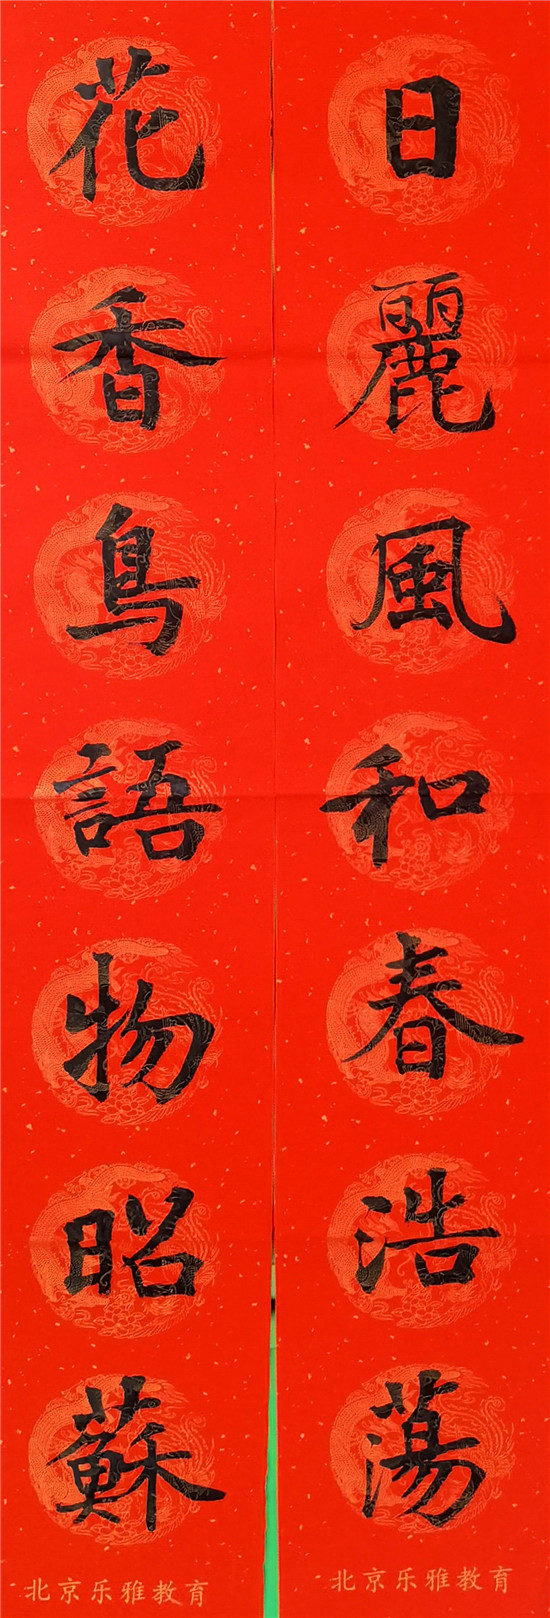 日麗風和春浩蕩
北京乐雅教育
花香鳥語物昭蘇
北京乐雅教育